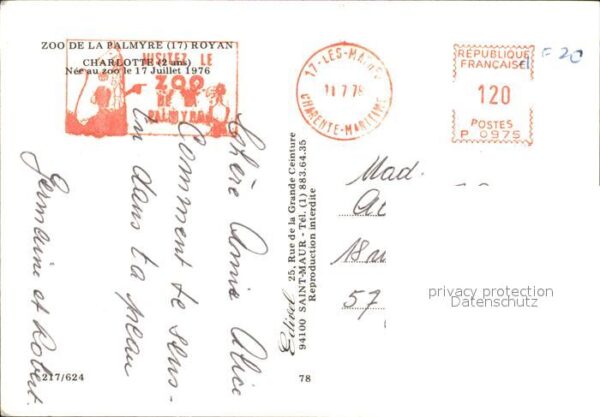 ZOO DE LA PALMYRE (17) ROYAN
CHARLOTTE (2 ans)
Née au zoo le 17 Juillet 1976
VISITEZ LE
ZOO
DE LA
PALMYRE
17-LES-MATHES
11.7.78
CHARENTE-MARITIME
RÉPUBLIQUE
FRANÇAISE
120
POSTES
P 0975
€ 20
Chère Amie Alice
Comment te sens-
tu dans ta peau
Germaine et Robert.
Editeal 25, Rue de la Grande Ceinture
94100 SAINT-MAUR - Tél. (1) 883.64.35
Reproduction interdite
Mad.
18
57
privacy protection
Datenschutz
217/624
78